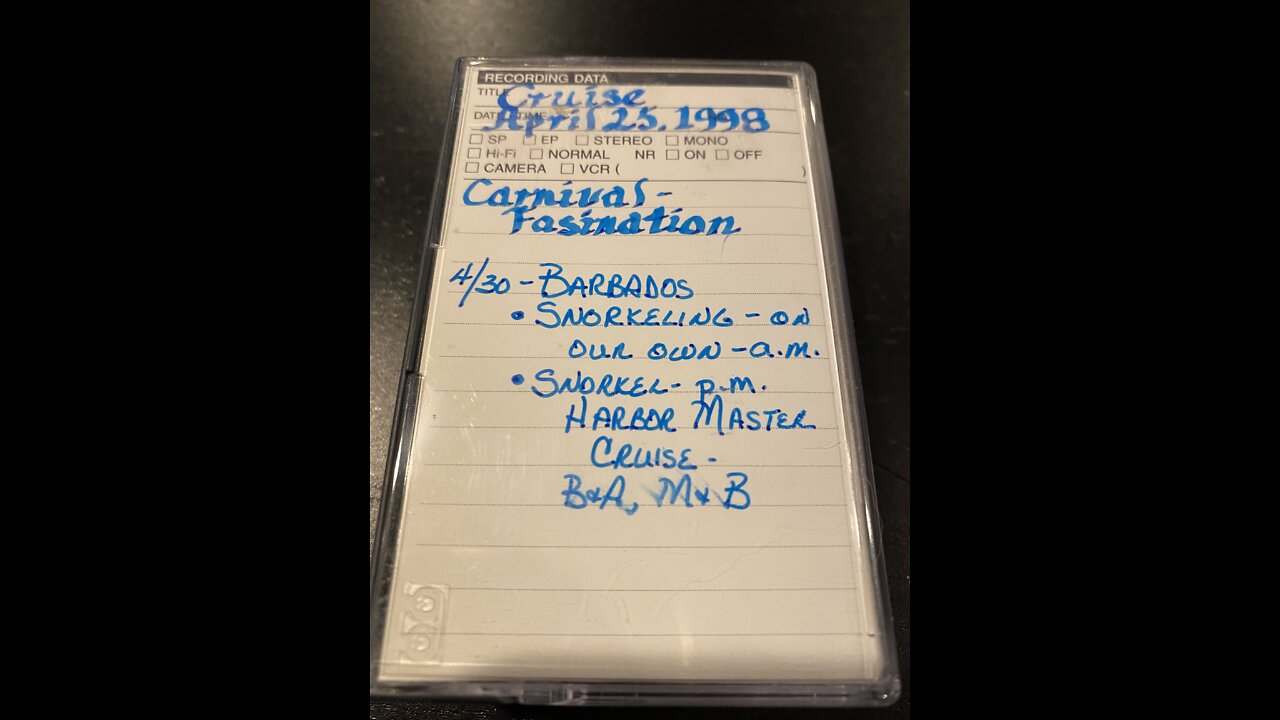 RECORDING DATA
TITLE Cruise
DATE/TIME April 25, 1998
☐ SP ☐ EP ☐ STEREO ☐ MONO
☐ Hi-Fi ☐ NORMAL NR ☐ ON ☐ OFF
☐ CAMERA ☐ VCR ( )
Carnival -
Fasination
4/30 - BARBADOS
• SNORKELING - ON
OUR OWN - a.m.
• SNORKEL - p.m.
HARBOR MASTER
CRUISE -
B&A, M& B